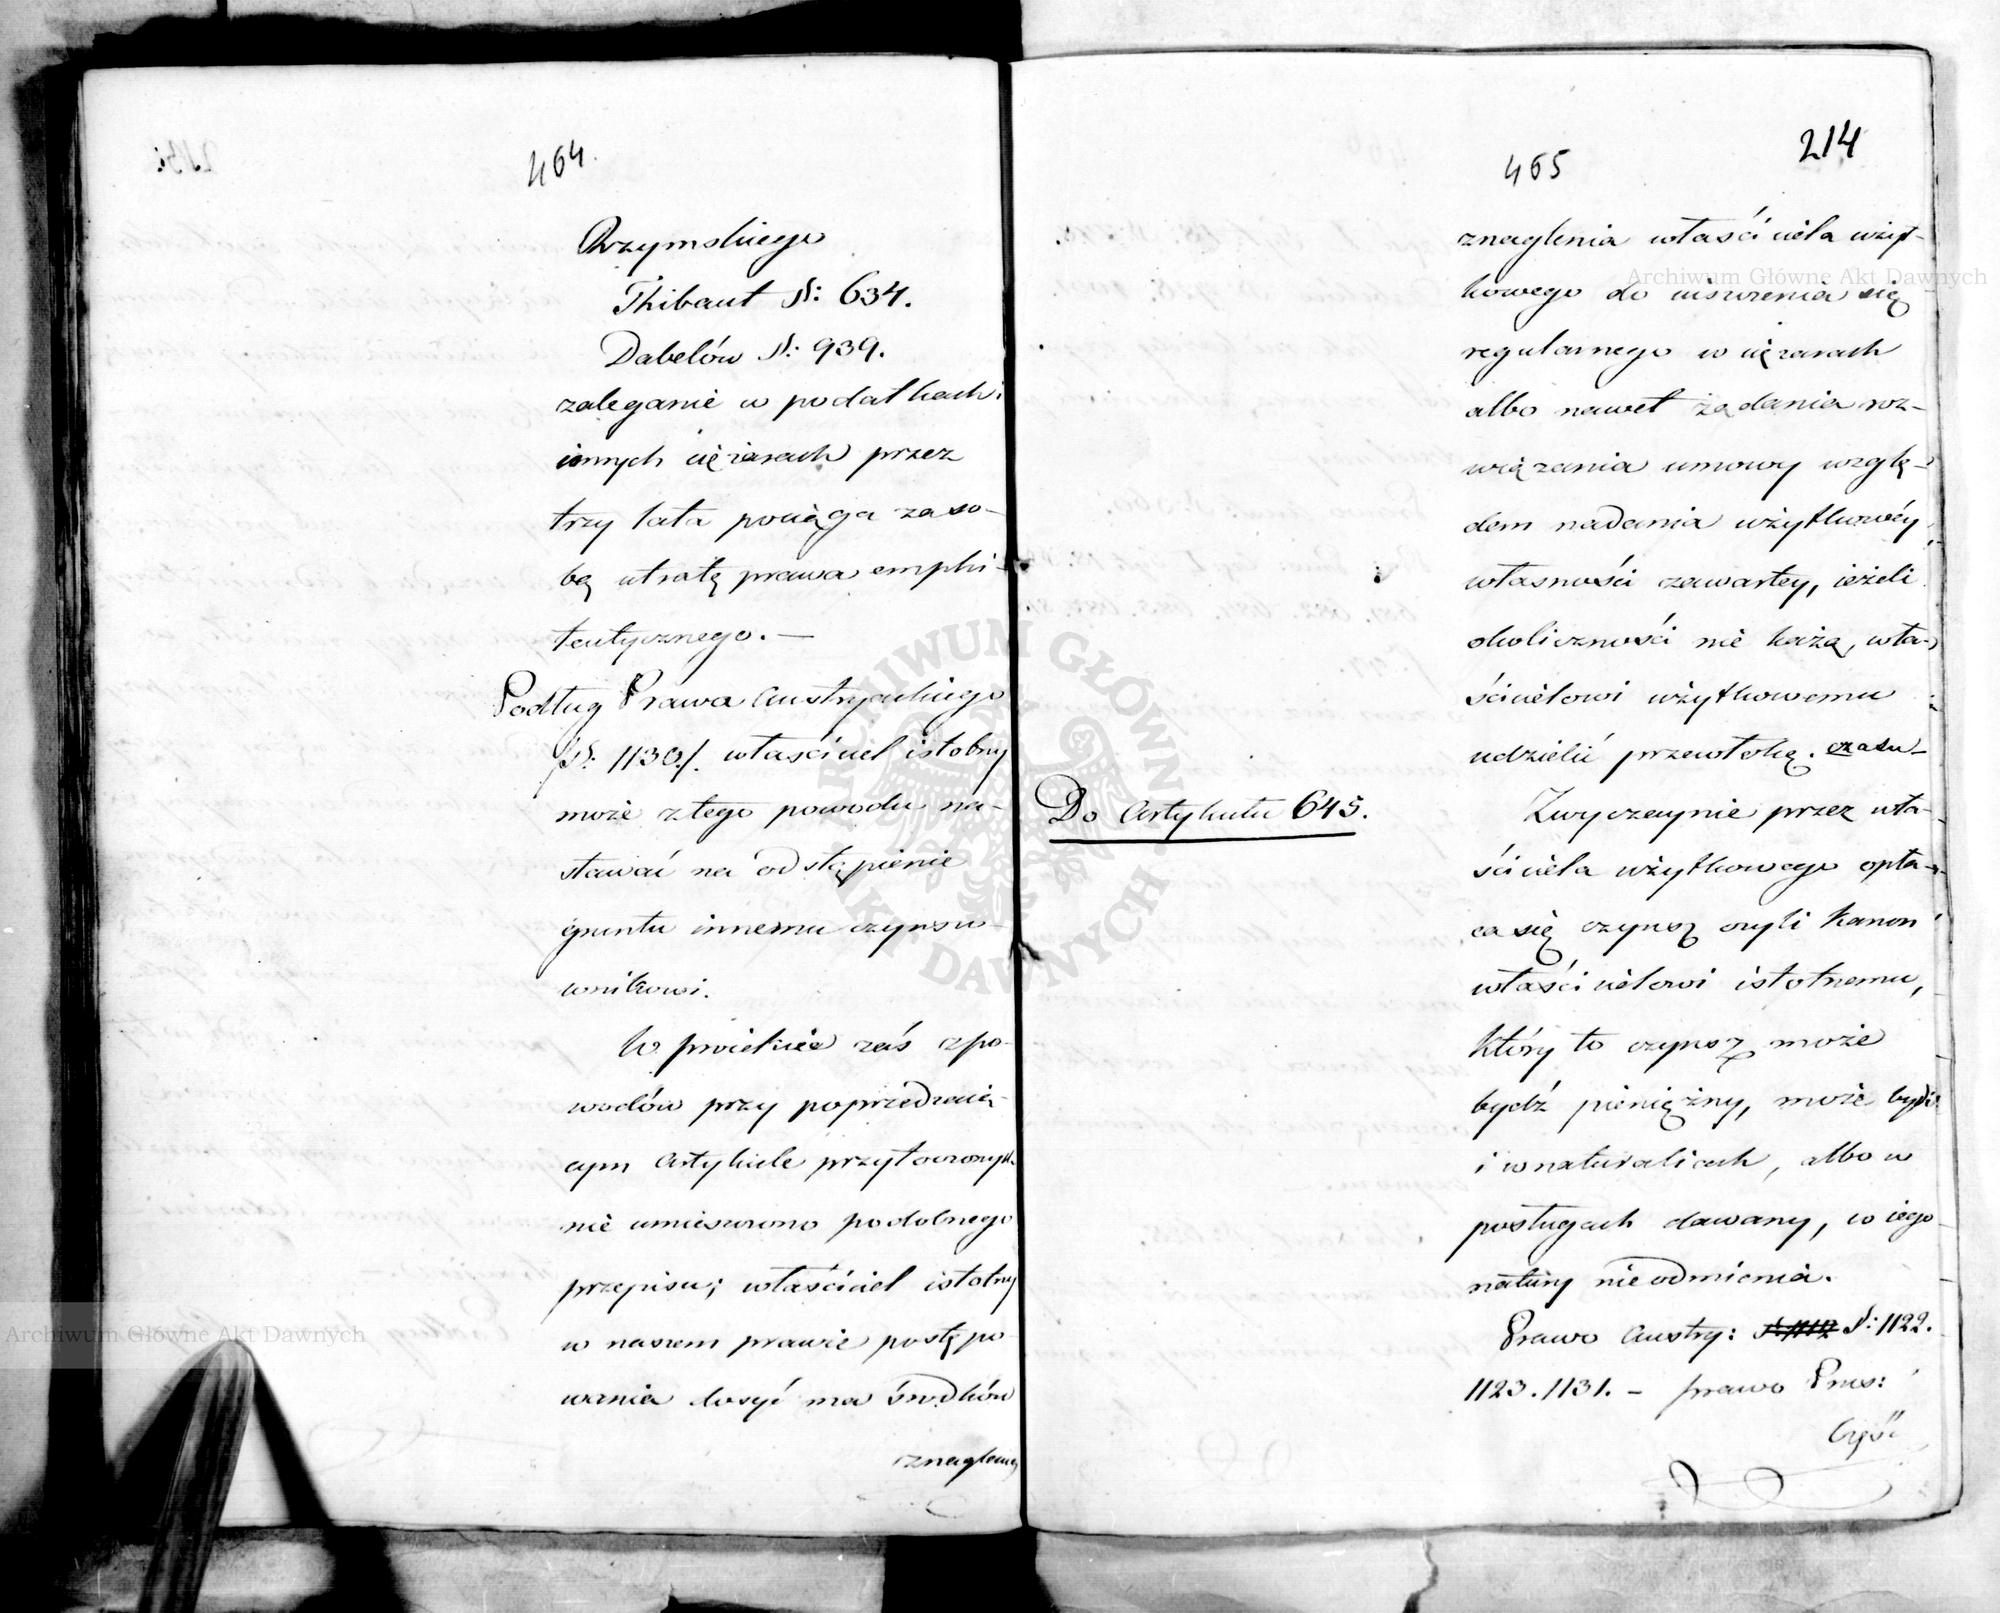 464.
Rzymskiego
Thibaut §: 634.
Dabelów §: 939.
zaleganie w podatkach i
innych ciężarach przez
trzy lata pociąga za so-
bą utratę prawa emphi-
teutycznego. —
Podług Prawa Austryackiego
/§: 1130./. właściciel istotny
może z tego powodu na-
stawać na odstąpienie
gruntu innemu czynszo-
wnikowi.
W proiekcie zaś z po-
wodów przy poprzedzaią-
cym Artykule przytoczonych
nie umieszczono podobnego
przepisu; właściciel istotny
w naszem prawie postępo-
wania dosyć ma środków
znaglenia
214
465
znaglenia właściciela użyt-
kowego do uiszczenia się
regularnego w ciężarach
albo nawet żądania roz-
wiązania umowy wzglę-
dem nadania użytkowéy
własności zawartey, ieżeli
okoliczności nie każą, wła-
ścicielowi użytkowemu
udzielić przewłokę. czasu
Do Artykułu 645.
Zwyczaynie przez wła-
ściciela użytkowego opła-
ca się czynsz czyli Kanon
właścicielowi istotnemu,
który to czynsz może
bydź pieniężny, może bydź
i w naturaliach, albo w
posługach dawany, w iego
natury nie odmienia.
Prawo Austry: §: 1122.
1123. 1131. – prawo Prus:
Część
Archiwum Główne Akt Dawnych
Archiwum Główne Akt Dawnych
ARCHIWUM GŁÓWNE AKT DAWNYCH